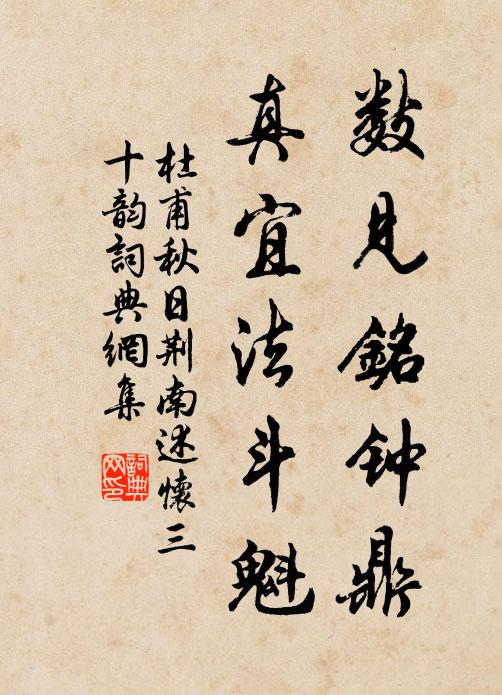 数见銘钟鼎
真宜法斗魁
杜甫秋日荆南述懷三
十韵詞典網集
詞典
网印